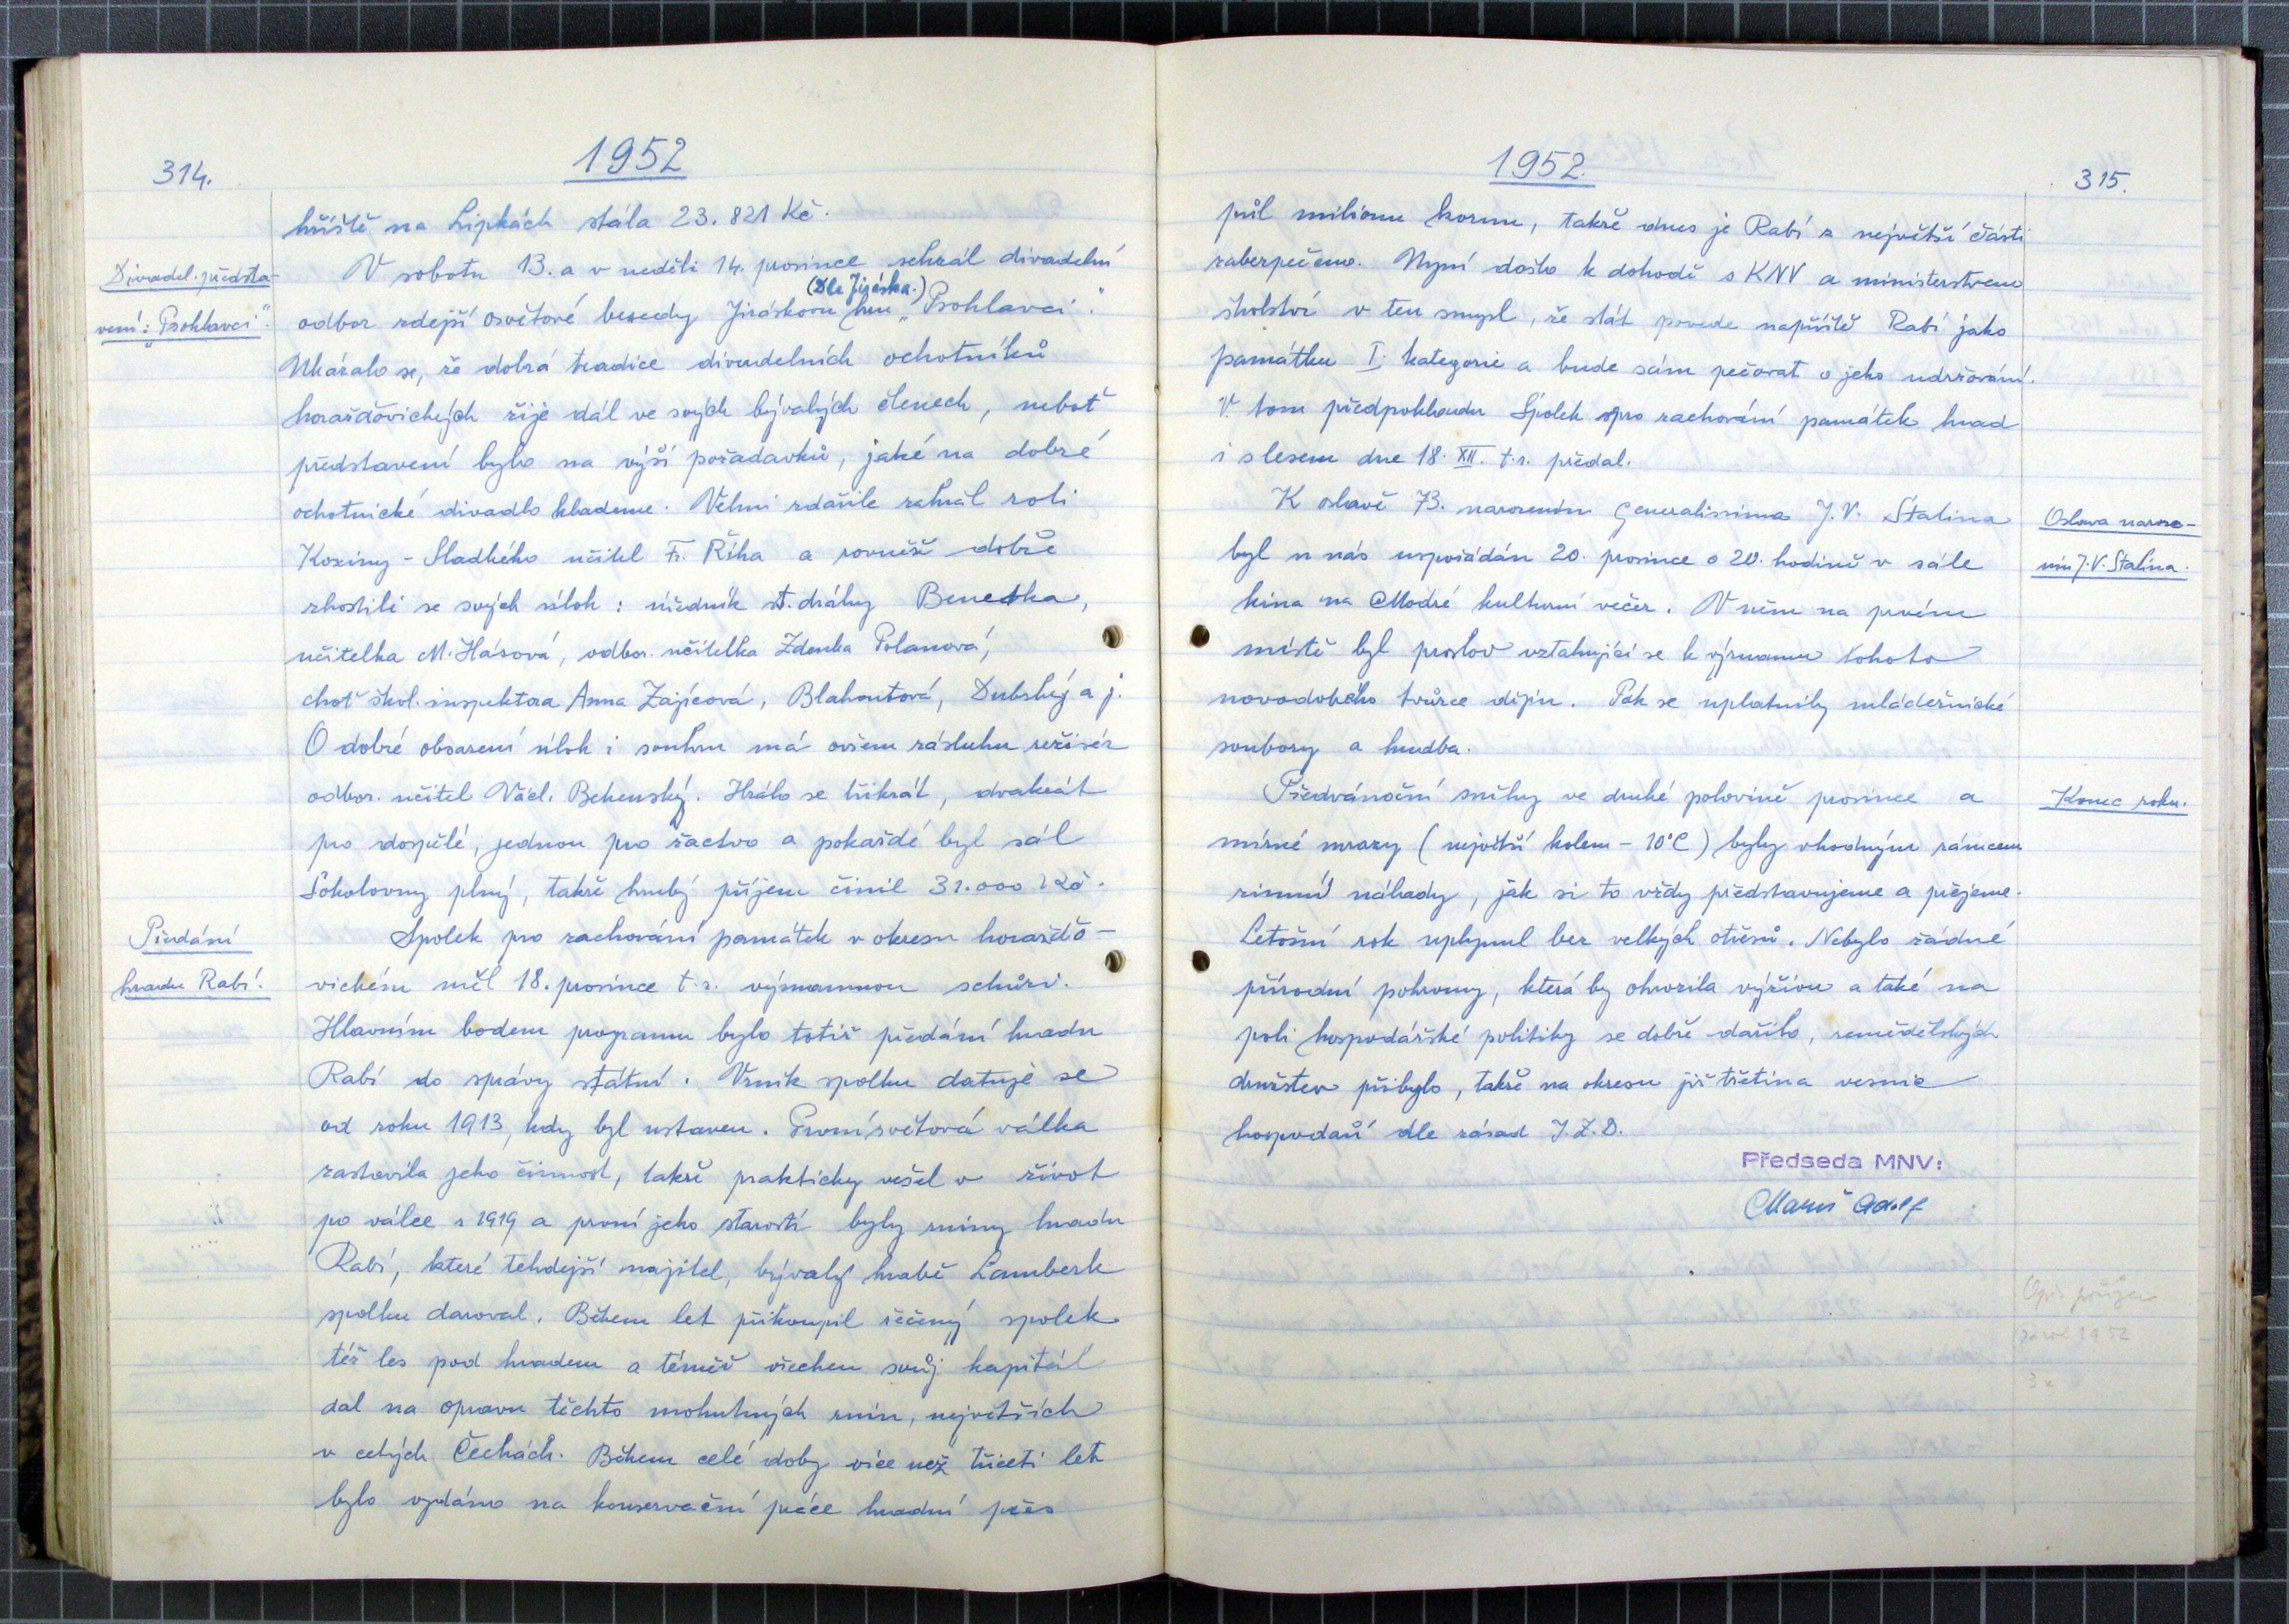 314.
1952
hříště na Lipkách stála 23.821 Kč.
Divadel. předsta-
vení: "Psohlavci".
V sobotu 13. a v neděli 14. prosince sehrál divadelní
(Dle Jiráska.)
odbor zdejší osvětové besedy Jiráskovu hru „Psohlavci".
Ukázalo se, že dobrá tradice divadelních ochotníků
horažďovických žije dál ve svých bývalých členech, neboť
představení bylo na výši požadavků, jaké na dobré
ochotnické divadlo klademe. Velmi zdařile zahrál roli
Koziny-Sladkého učitel Fr. Říha a rovněž dobře
zhostili se svých úloh: úředník st. dráhy Benedka,
učitelka M. Hásová, odbor. učitelka Zdenka Polanová,
choť škol. inspektora Anna Zajícová, Blahoutová, Dubský a j.
O dobré obsazení úloh i souhru má ovšem zásluhu režisér
odbor. učitel Václ. Behenský. Hrálo se třikrát, dvakrát
pro dospělé, jednou pro žactvo a pokaždé byl sál
Sokolovny plný, takže hrubý příjem činil 31.000 Kčs.
Předání
hradu Rabí.
Spolek pro zachování památek v okresu horažďo-
vickém měl 18. prosince t.r. významnou schůzi.
Hlavním bodem programu bylo totiž předání hradu
Rabí do správy státní. Vznik spolku datuje se
od roku 1913, kdy byl ustaven. První světová válka
zastavila jeho činnost, takže prakticky vešel v život
po válce r 1919 a první jeho starostí byly ruiny hradu
Rabí, které tehdejší majitel, bývalý hrabě Lamberk
spolku daroval. Během let přikoupil řečený spolek
též les pod hradem a téměř všechen svůj kapitál
dal na opravu těchto mohutných ruin, největších
v celých Čechách. Během celé doby více než třiceti let
bylo vydáno na konservační práce hradní přes
1952.
315.
půl milionu korun, takže dnes je Rabí z největší části
zabezpečeno. Nyní došlo k dohodě s KNV a ministerstvem
školství v ten smysl, že stát povede napříště Rabí jako
památku I. kategorie a bude sám pečovat o jeho udržování.
V tom předpokladu Spolek pro zachování památek hrad
i s lesem dne 18. XII. t.r. předal.
Oslava naroze-
nin J.V. Stalina.
K oslavě 73. narozenin Generalissima J.V. Stalina
byl u nás uspořádán 20. prosince o 20. hodině v sále
kina na Modré kulturní večer. V něm na prvém
místě byl proslov vztahující se k významu tohoto
novodobého tvůrce dějin. Pak se uplatnily mládežnické
soubory a hudba.
Konec roku.
Předvánoční sněhy ve druhé polovině prosince a
mírné mrazy (největší kolem - 10°C) byly vhodným rámcem
zimní nálady, jak si to vždy představujeme a přejeme.
Letošní rok uplynul bez velkých otřesů. Nebylo žádné
přírodní pohromy, která by ohrozila výživu a také na
poli hospodářské politiky se dobře dařilo, zemědělských
družstev přibylo, takže na okresu již třetina vesnic
hospodaří dle zásad J.Z.D.
Předseda MNV:
Adolf
za rok 1952
3x